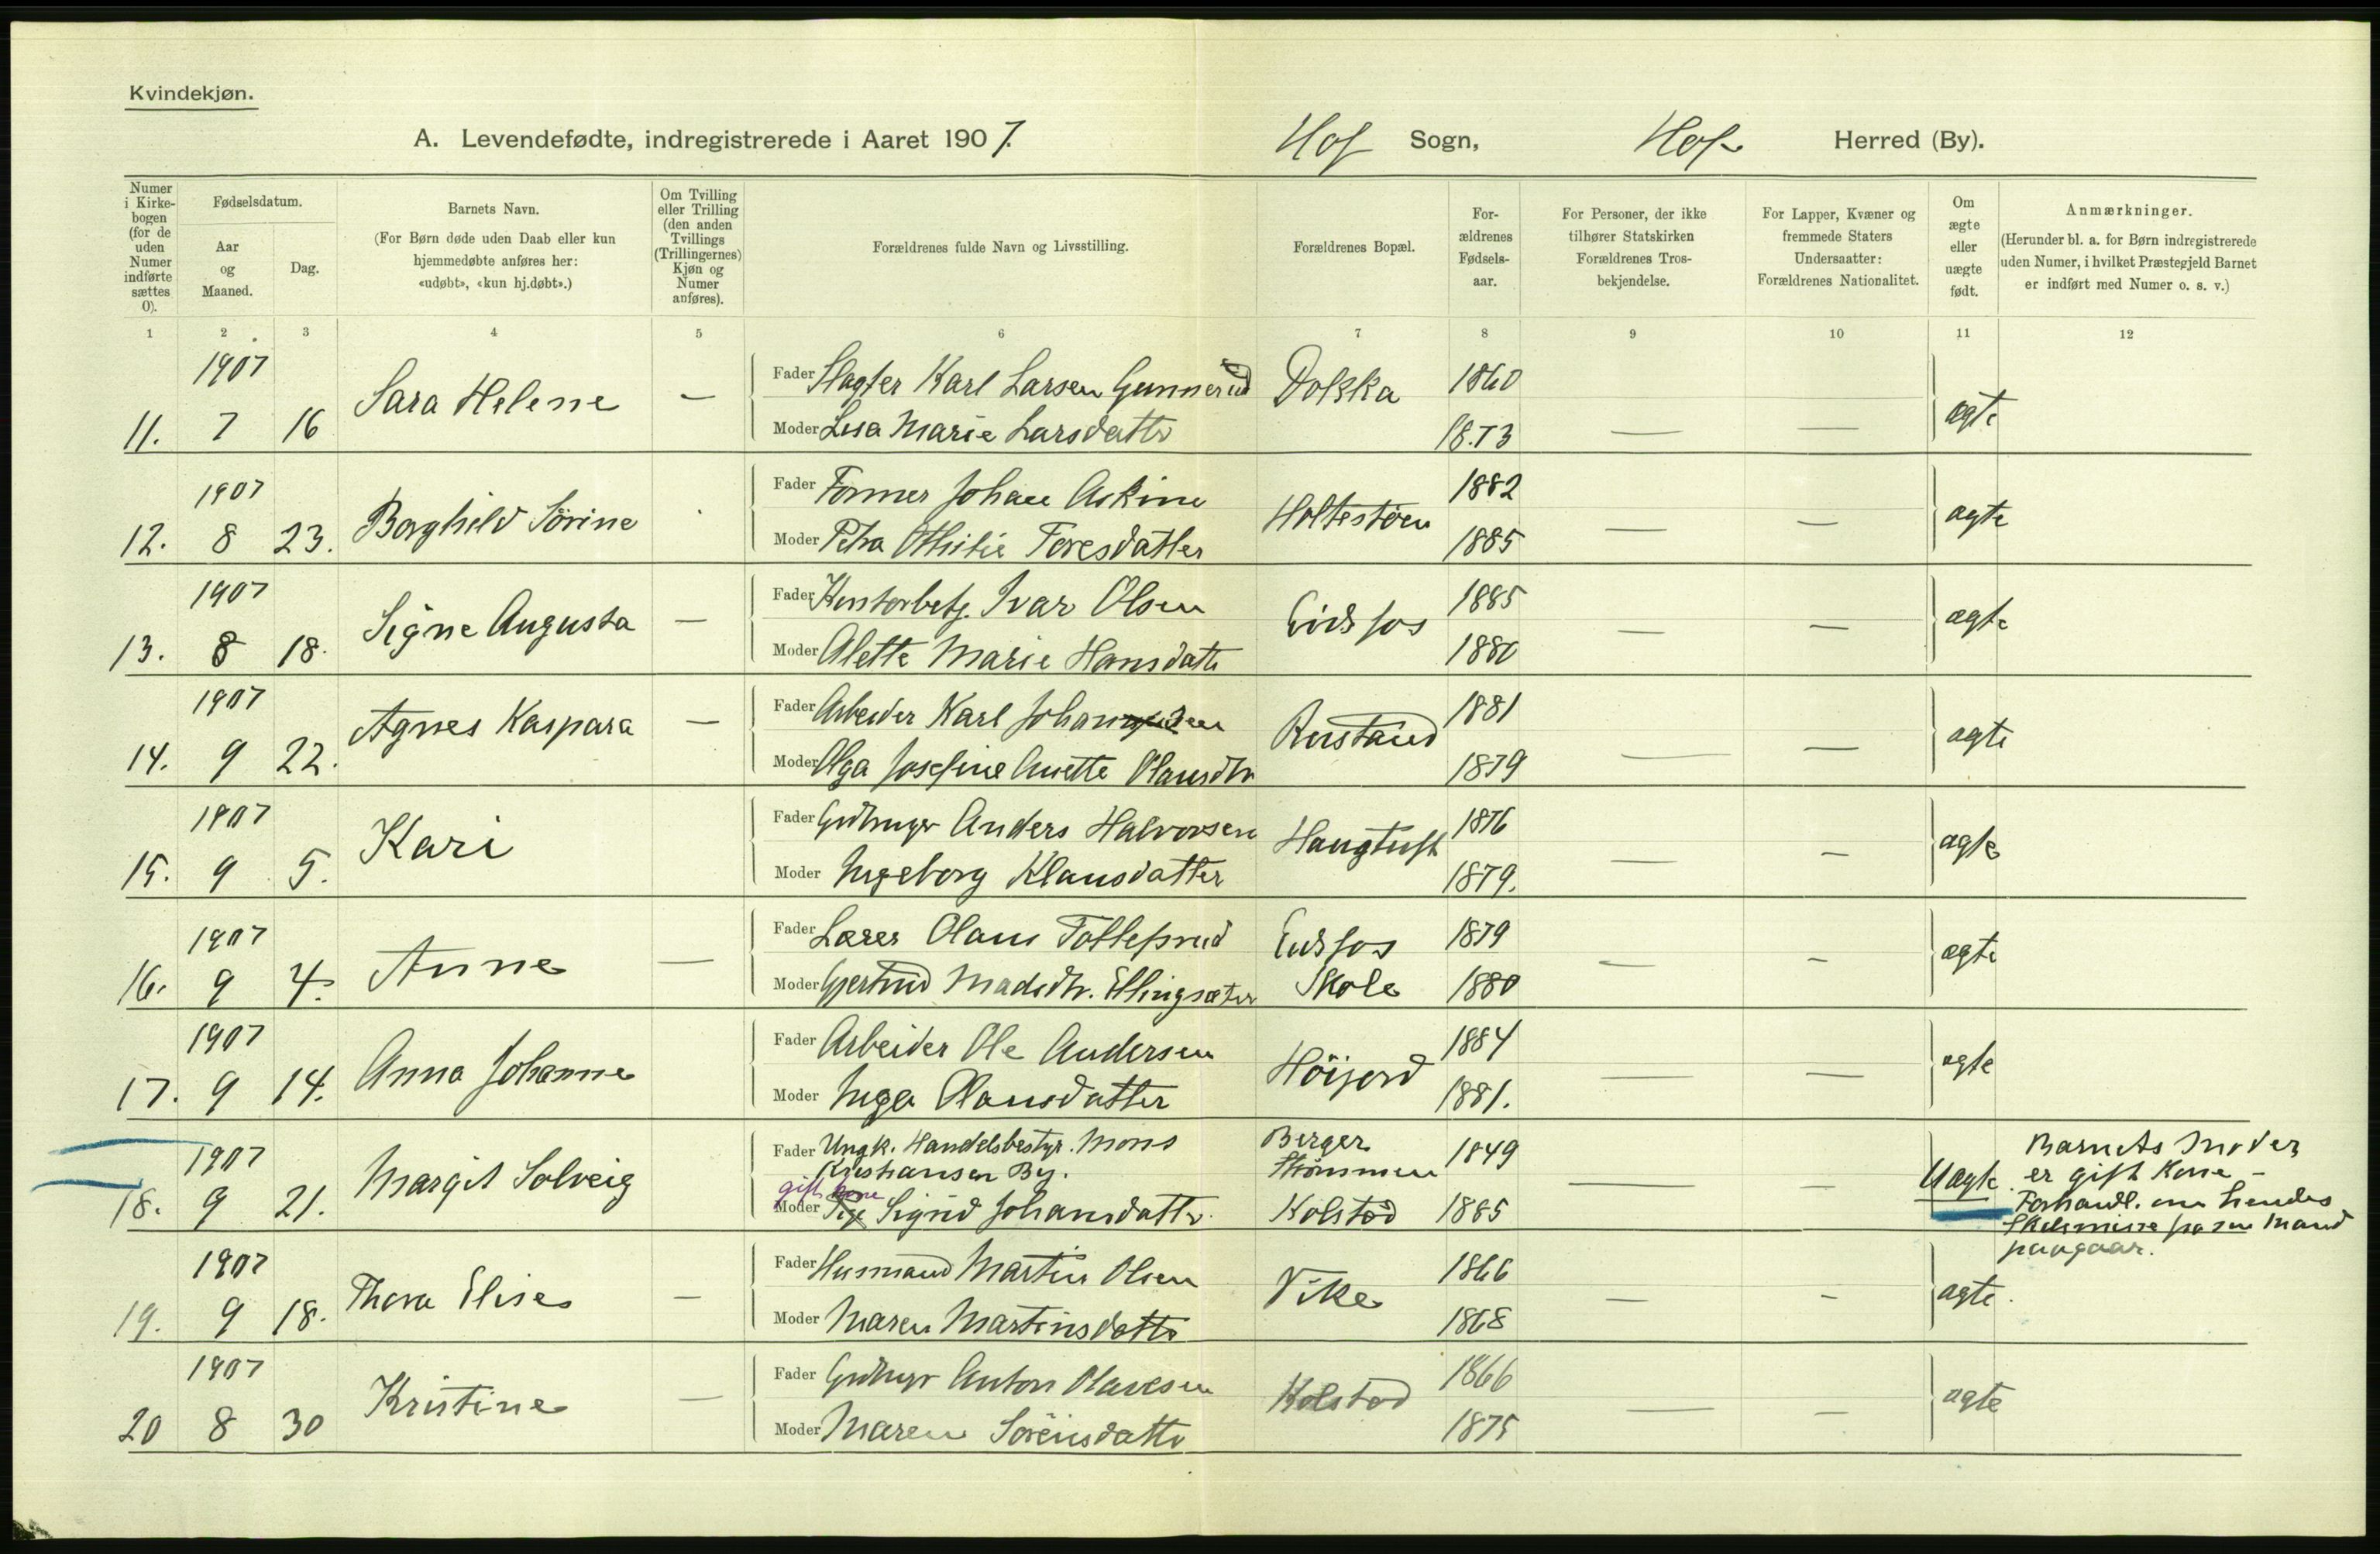 Kvindekjøn.
A. Levendefødte, indregistrerede i Aaret 1907. Hof Sogn, Hof Herred (By).
Numer i Kirke-bogen (for de uden Numer indførte sættes 0).
Fødselsdatum.
Aar og Maaned.
Dag.
Barnets Navn.
(For Børn døde uden Daab eller kun hjemmedøbte anføres her: «udøbt», «kun hj.døbt».)
Om Tvilling eller Trilling (den anden Tvillings (Trillingernes) Kjøn og Numer anføres).
Forældrenes fulde Navn og Livsstilling.
Forældrenes Bopæl.
For-ældrenes Fødsels-aar.
For Personer, der ikke tilhører Statskirken Forældrenes Tros-bekjendelse.
For Lapper, Kvæner og fremmede Staters Undersaatter: Forældrenes Nationalitet.
Om ægte eller uægte født.
Anmærkninger.
(Herunder bl. a. for Børn indregistrerede uden Numer, i hvilket Præstegjeld Barnet er indført med Numer o. s. v.)
1 2 3 4 5 6 7 8 9 10 11 12
1907 Fader Slagter Karl Larsen Gunnerud 1860
11. 7 16 Sara Helene — Moder Lisa Marie Larsdatter 1873 — — ægte
1907 Fader Former Johan 1882
12. 8 23. Borghild Sörine Moder Petra Othilie Toresdatter 1885 — — ægte
1907 Fader Kontorbetj. Ivar Olsen Eidsfos 1885
13. 8 18. Signe Augusta — Moder Alette Marie Hansdatter 1880 — — ægte
1907 Fader Arbeider Karl 1881
14. 9 22. Agnes Kaspara — Moder Olga Josefine Anette Olausdtr 1879 — — ægte
1907 Fader Gdbruger Anders Halvorsen 1876
15. 9 5. Kari Moder Ingeborg Klausdatter 1879. — — ægte
1907 Fader Lærer Olaus Tollefsrud Eidsfos 1879
16. 9 4. Anne — Moder Gjertrud Madsdtr. Ellingsæter Skole 1880 — — ægte
1907 Fader Arbeider Ole Andersen Höijord 1884
17. 9 14. Anna Johanne Moder Inga Olausdatter 1881. — — ægte
1907 Fader Ungk. Handelsbestyr. Mons Kristiansen By. Berger Strömmen 1849
gift kone
18. 9 21. Margit Solveig Moder Pige Sigrid Johansdatter. Kolstad 1885 — — Uægte
Barnets Moder
er gift Kone –
Forhandl. om hendes
Skilsmisse fra sin Mand
paagaar.
1907 Fader Husmand Martin Olsen Vike 1866
19. 9 18. Thora Elise — Moder Maren Martinsdatter 1868 — — ægte.
1907 Fader Gdbrgr Anton Olavesen Kolstad 1866
20 8 30 Kristine — Moder Maren Sörensdatter 1875 — — ægte